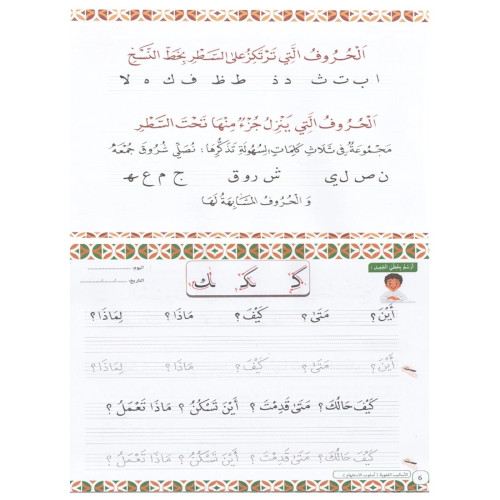 اَلْحُرُوفُ الَّتِي تَرْتَكِزُ عَلَى السَّطْرِ بِخَطِّ النَّسْخِ
ا ب ت ث د ذ ط ظ ف ك ه لا
اَلْحُرُوفُ الَّتِي يَنْزِلُ جُزْءٌ مِنْهَا تَحْتَ السَّطْرِ
مَجْمُوعَةٌ فِي ثَلَاثِ كَلِمَاتٍ لِسُهُولَةِ تَذَكُّرِهَا : نُصَلِّي شُرُوقَ جُمْعَه
ن ص ل ي ش ر و ق ج م ع ه
وَ الْحُرُوفُ الْمُشَابِهَةُ لَهَا
أرسم بخطي الجميل :
اليوم:
التاريخ:
كـ ـكـ ـك
أَيْنَ ؟ مَتَى ؟ كَيْفَ ؟ مَاذَا ؟ لِمَاذَا ؟
أَيْنَ ؟ مَتَى ؟ كَيْفَ ؟ مَاذَا ؟ لِمَاذَا ؟
كَيْفَ حَالُكَ ؟ مَتَى قَدِمْتَ ؟ أَيْنَ تَسْكُنُ ؟ مَاذَا تَعْمَلُ ؟
كَيْفَ حَالُكَ ؟ مَتَى قَدِمْتَ ؟ أَيْنَ تَسْكُنُ ؟ مَاذَا تَعْمَلُ ؟
6
الأساليب اللغوية ( أسلوب الاستفهام )